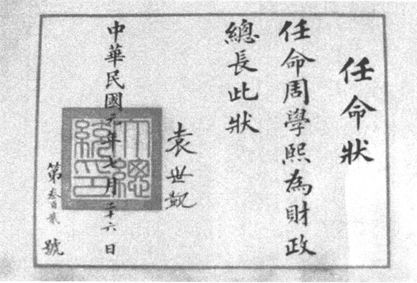 任命狀
任命周學熙為財政
總長此狀
袁世凱
大總統印
中華民國元年七月二十六日
第叁百貳號